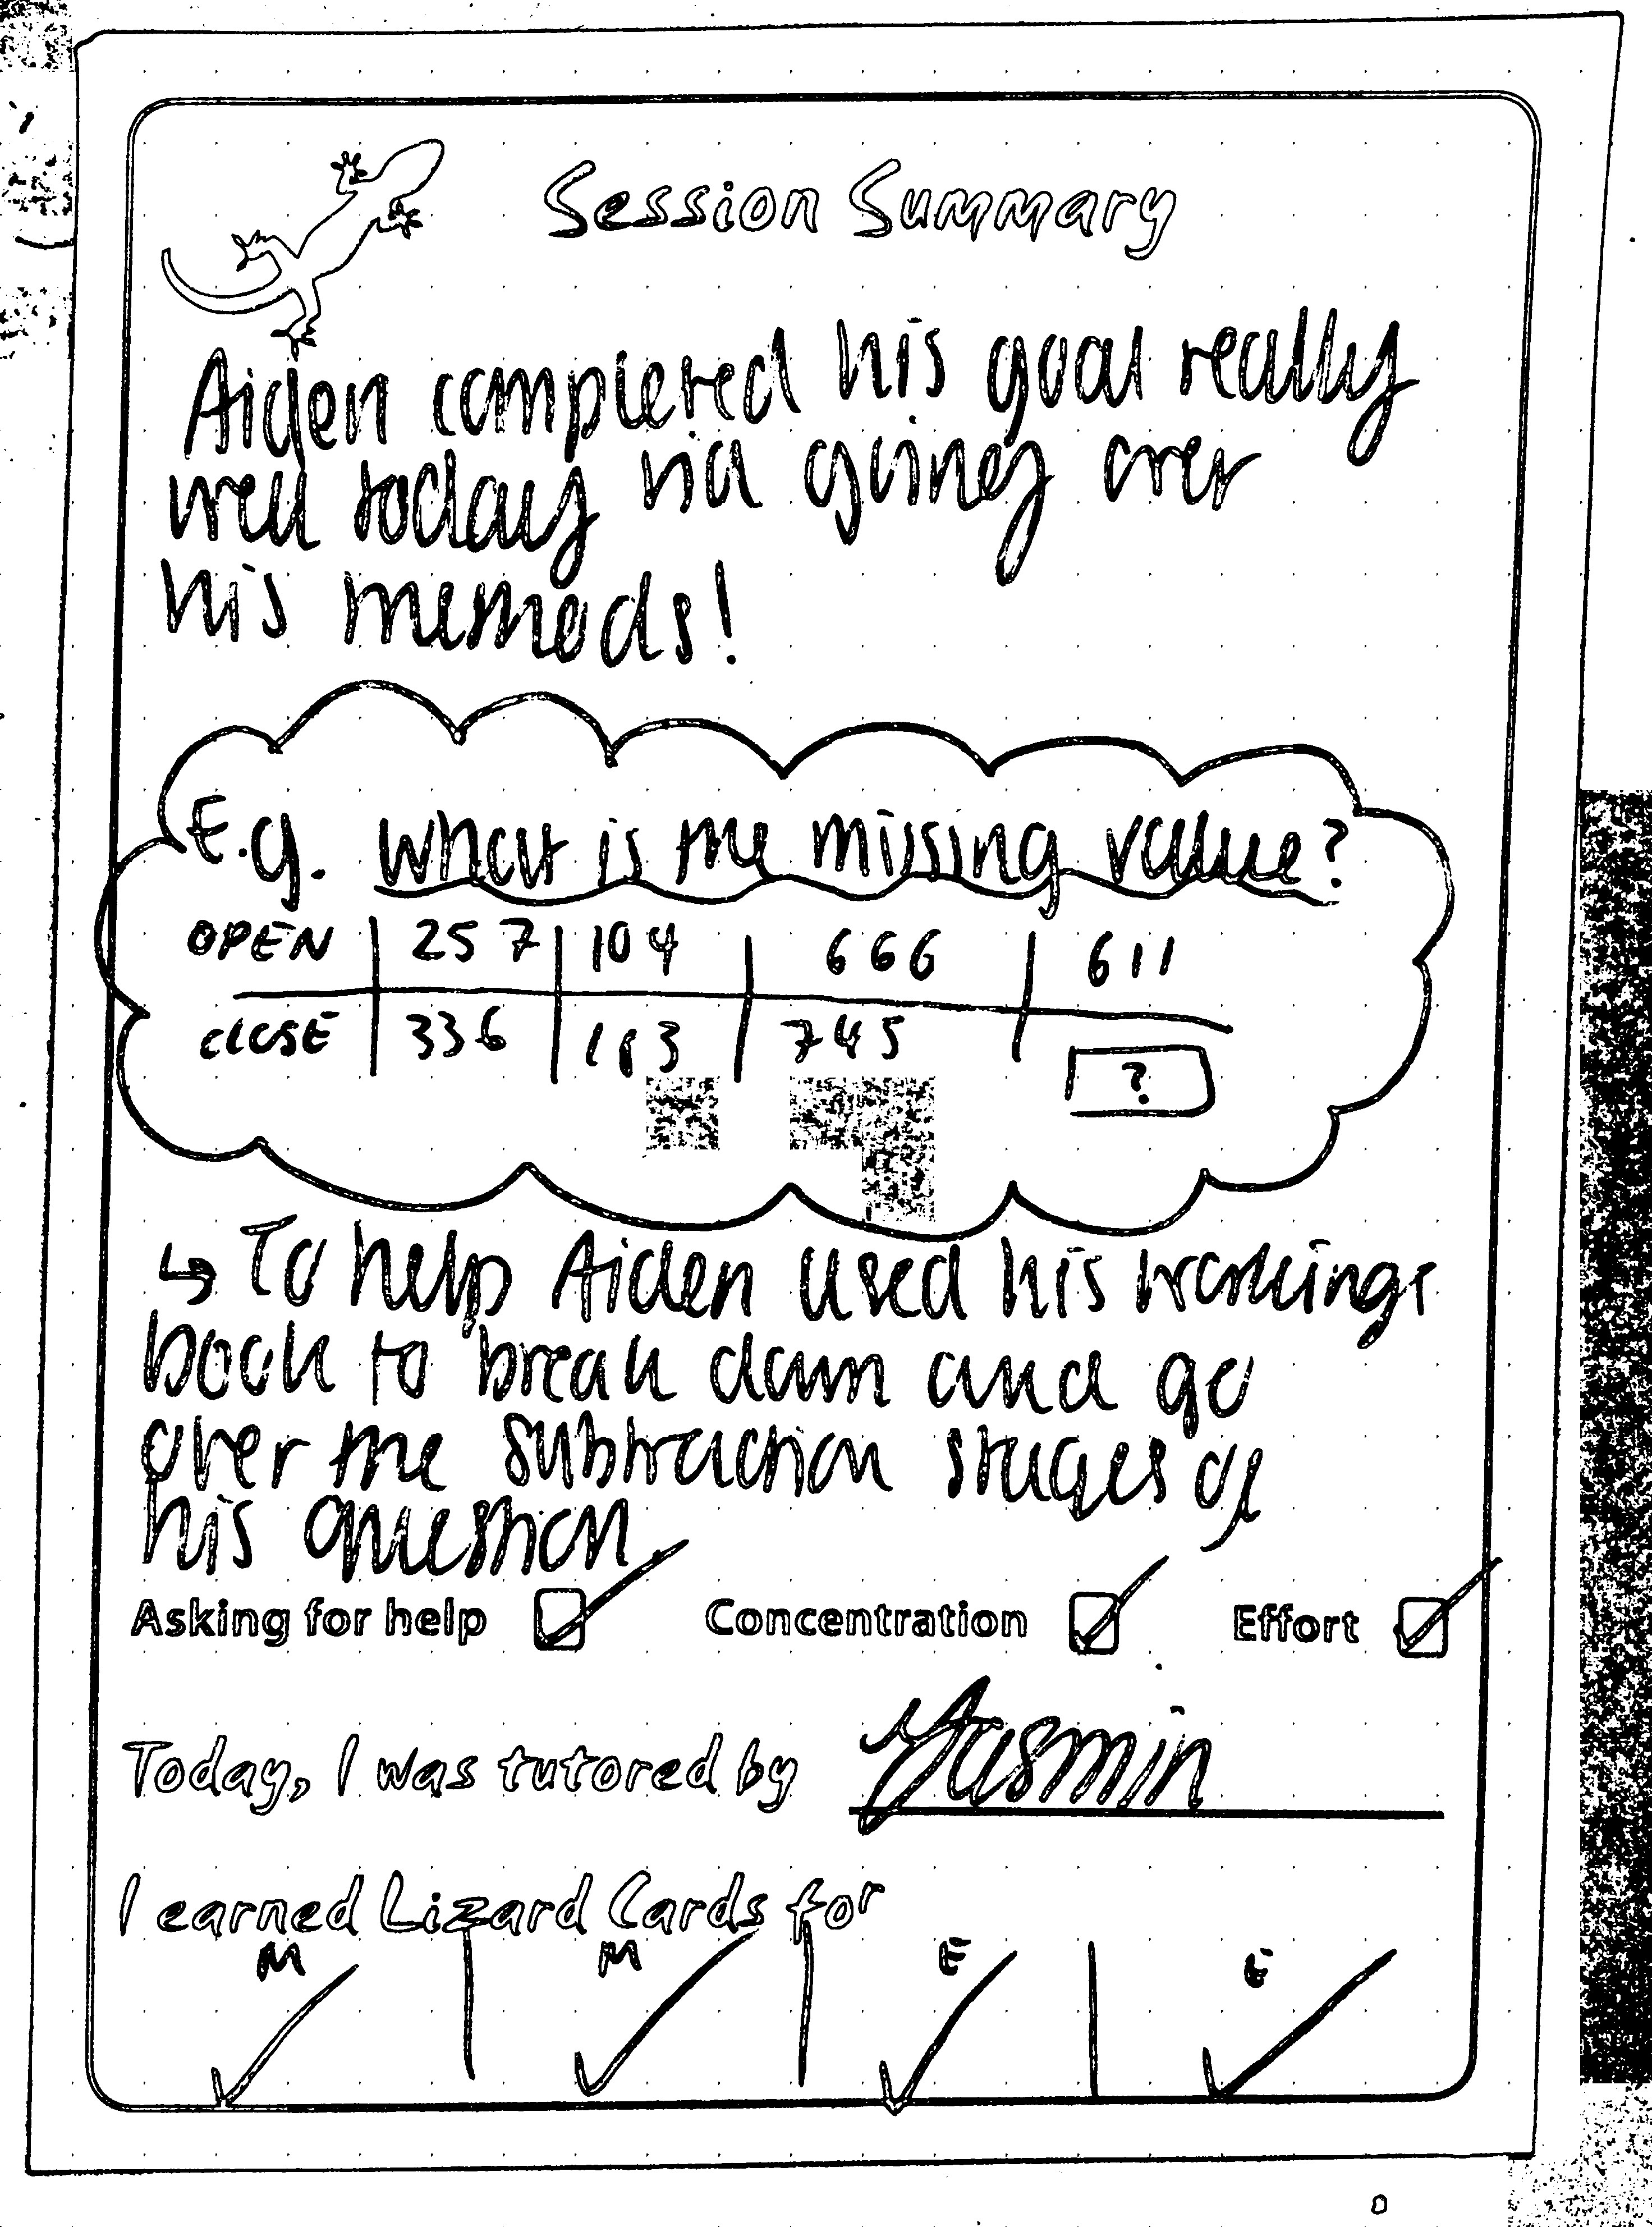 Session Summary
Aiden completed his goal really
well today via going over
his methods!
E.g. What is the missing value?
OPEN 257 104 666 611
CLOSE 336 183 745 ?
↳ To help Aiden used his workings
book to break down and go
over the subtraction stages of
his question
Asking for help ☑ Concentration ☑ Effort ☑
Today, I was tutored by Yasmin
I earned Lizard Cards for
M ✓ M ✓ E ✓ E ✓